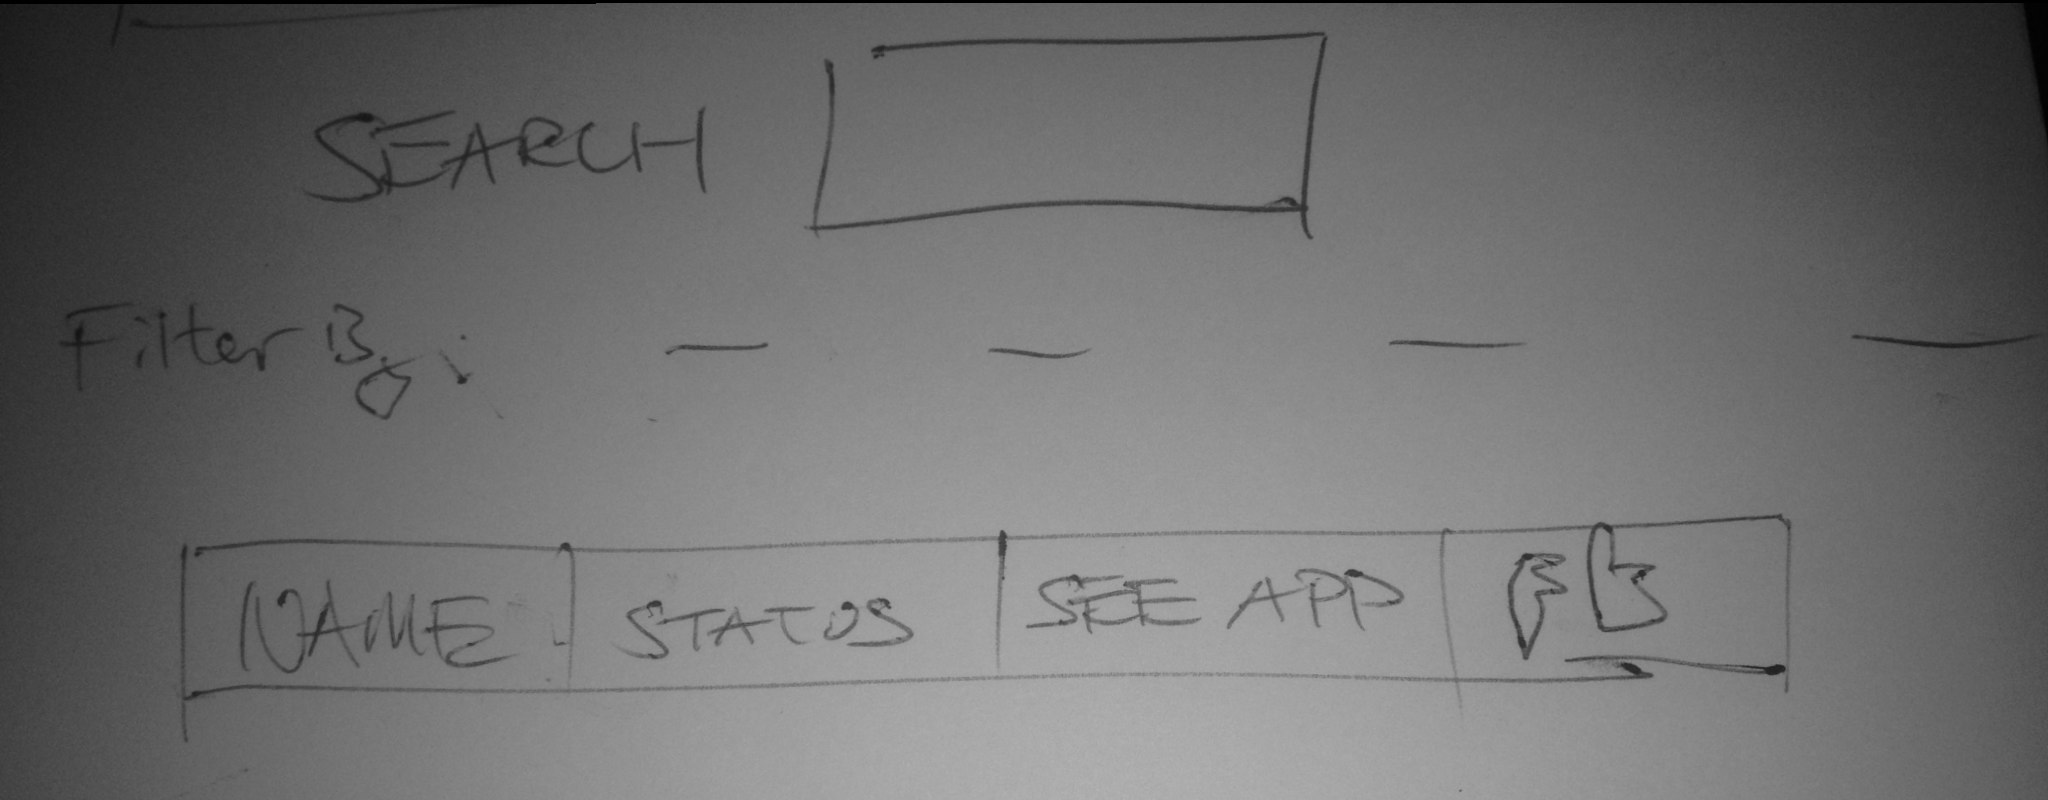 SEARCH
Filter By:
NAME STATUS SEE APP